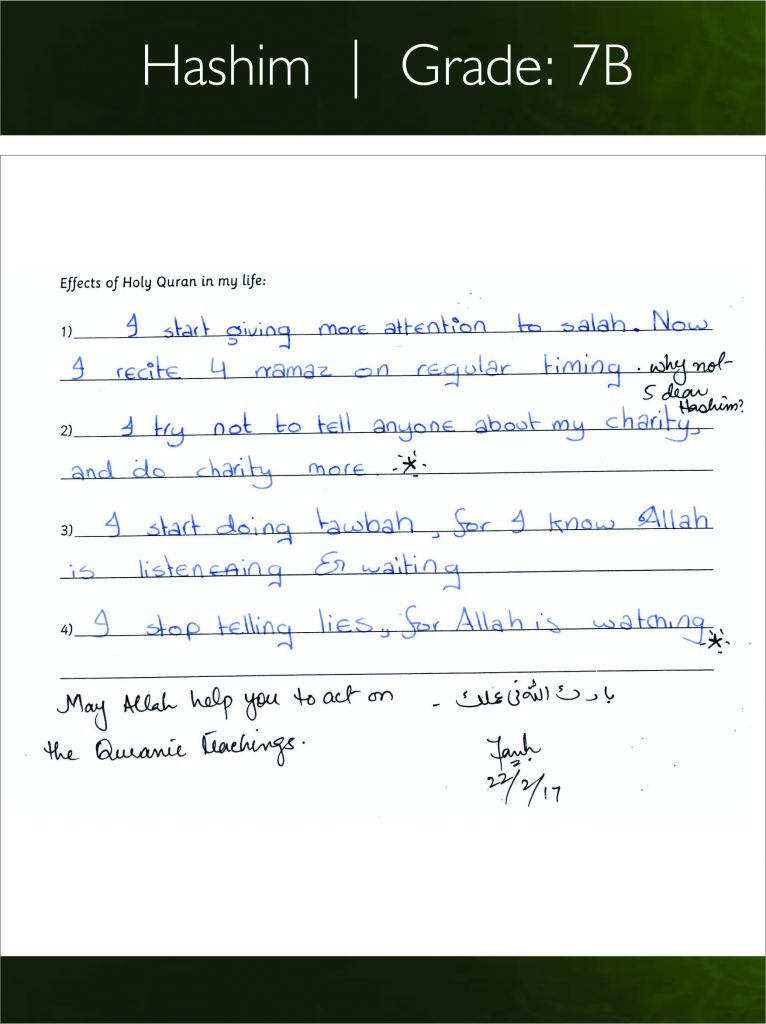 Hashim | Grade: 7B
Effects of Holy Quran in my life:
1) I start giving more attention to salah. Now
I recite 4 namaz on regular timing. why not
5 dear
Hashim?
2) I try not to tell anyone about my charity,
and do charity more
3) I start doing tawbah, for I know Allah
is listenening & waiting
4) I stop telling lies, for Allah is watching
May Allah help you to act on - بارك الله فى
the Quranic Teachings.
22/2/17